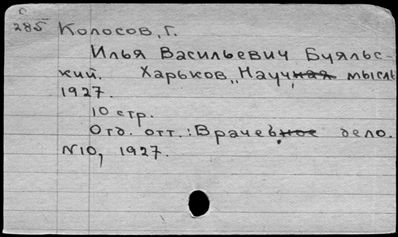 С
285 Колосов, Г.
Илья Васильевич Буяльс-
кий. Харьков, „Научная мысль
1927.
10 стр.
Отд. отт.: Врачебное дело.
N10, 1927.